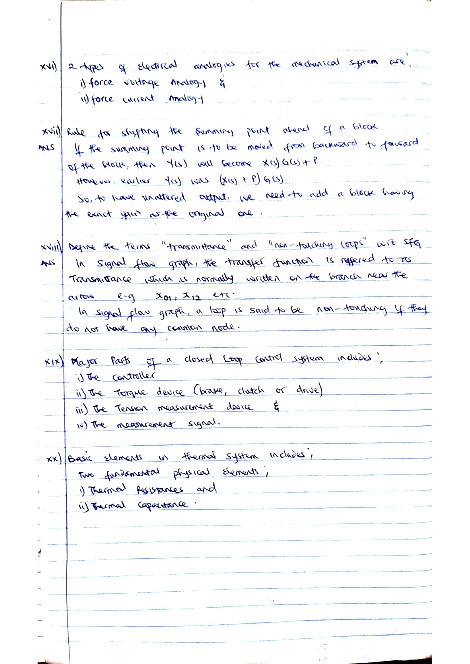 xvi) 2 types of Electrical analogies for the mechanical system are;
i) force voltage Analogy &
ii) force current Analogy
xvii) Rule for shifting the summing point ahead of a block
ANS If the summing point is to be moved from backward to forward
of the block, then Y(s) will become X(s)G(s) + P
However, earlier Y(s) was (X(s) + P) G(s)
So, to have unaltered output, we need to add a block having
the exact gain as the original one.
xviii) Define the terms "transmittance" and "non-touching loops" wrt SFG
ANS In signal flow graph, the transfer function is reffered to as
Transmittance which is normally written on the branch near the
arrow e-g X01, X12 etc.
In signal flow graph, a loop is said to be non-touching if they
do not have any common node.
xix) Major Parts of a closed Loop control system includes;
i) The Controller
ii) The Torque device (brake, clutch or drive)
iii) The Tension measurement device &
iv) The measurement signal.
xx) Basic elements in thermal system includes;
Two fundamental physical elements;
i) Thermal Resistances and
ii) Thermal Capacitance.